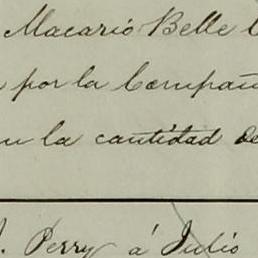 Macario Belle
por la Compañ
la cantidad de
Perry á Julio